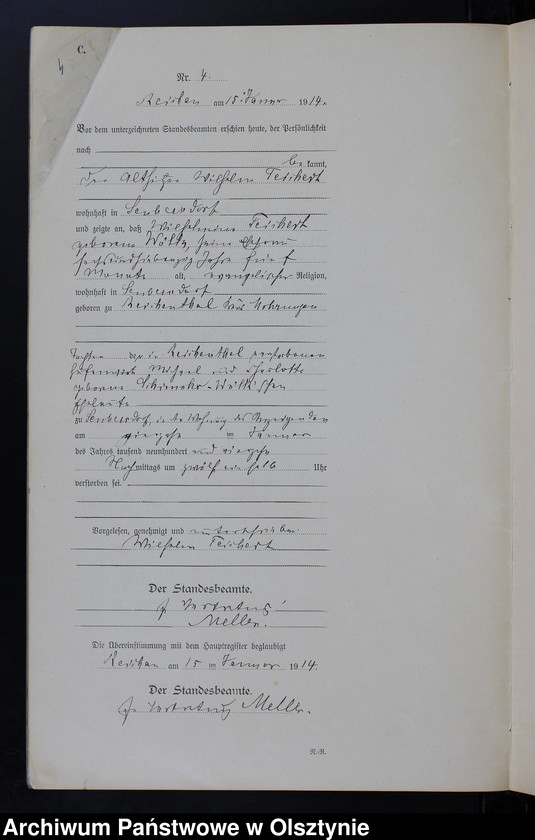 C.
4
Nr. 4.
Reichau am 15. Januar 1914.
Vor dem unterzeichneten Standesbeamten erschien heute, der Persönlichkeit
nach
be kannt,
der Altsitzer Wilhelm Teichert
wohnhaft in
und zeigte an, daß Wilhelmine Teichert
geborene seine Ehefrau
sechsundsiebenzig Jahre fünf
Monate alt, evangelischer Religion,
wohnhaft in
geboren zu Reichenthal Kreis Mohrungen
Tochter der in Reichenthal verstorbenen
Michael und Charlotte
geborene
Eheleute
zu in der Wohnung des Anzeigenden
am vierzehn im Januar
des Jahres tausend neunhundert und vierzehn
Nachmittags um zwölf ein halb Uhr
verstorben sei.
Vorgelesen, genehmigt und unterschrieben
Wilhelm Teichert
Der Standesbeamte.
In Vertretung
Meller.
Die Übereinstimmung mit dem Hauptregister beglaubigt
Reichau am 15 im Januar 1914.
Der Standesbeamte.
In Vertretung Meller.
N.-R.
Archiwum Państwowe w Olsztynie